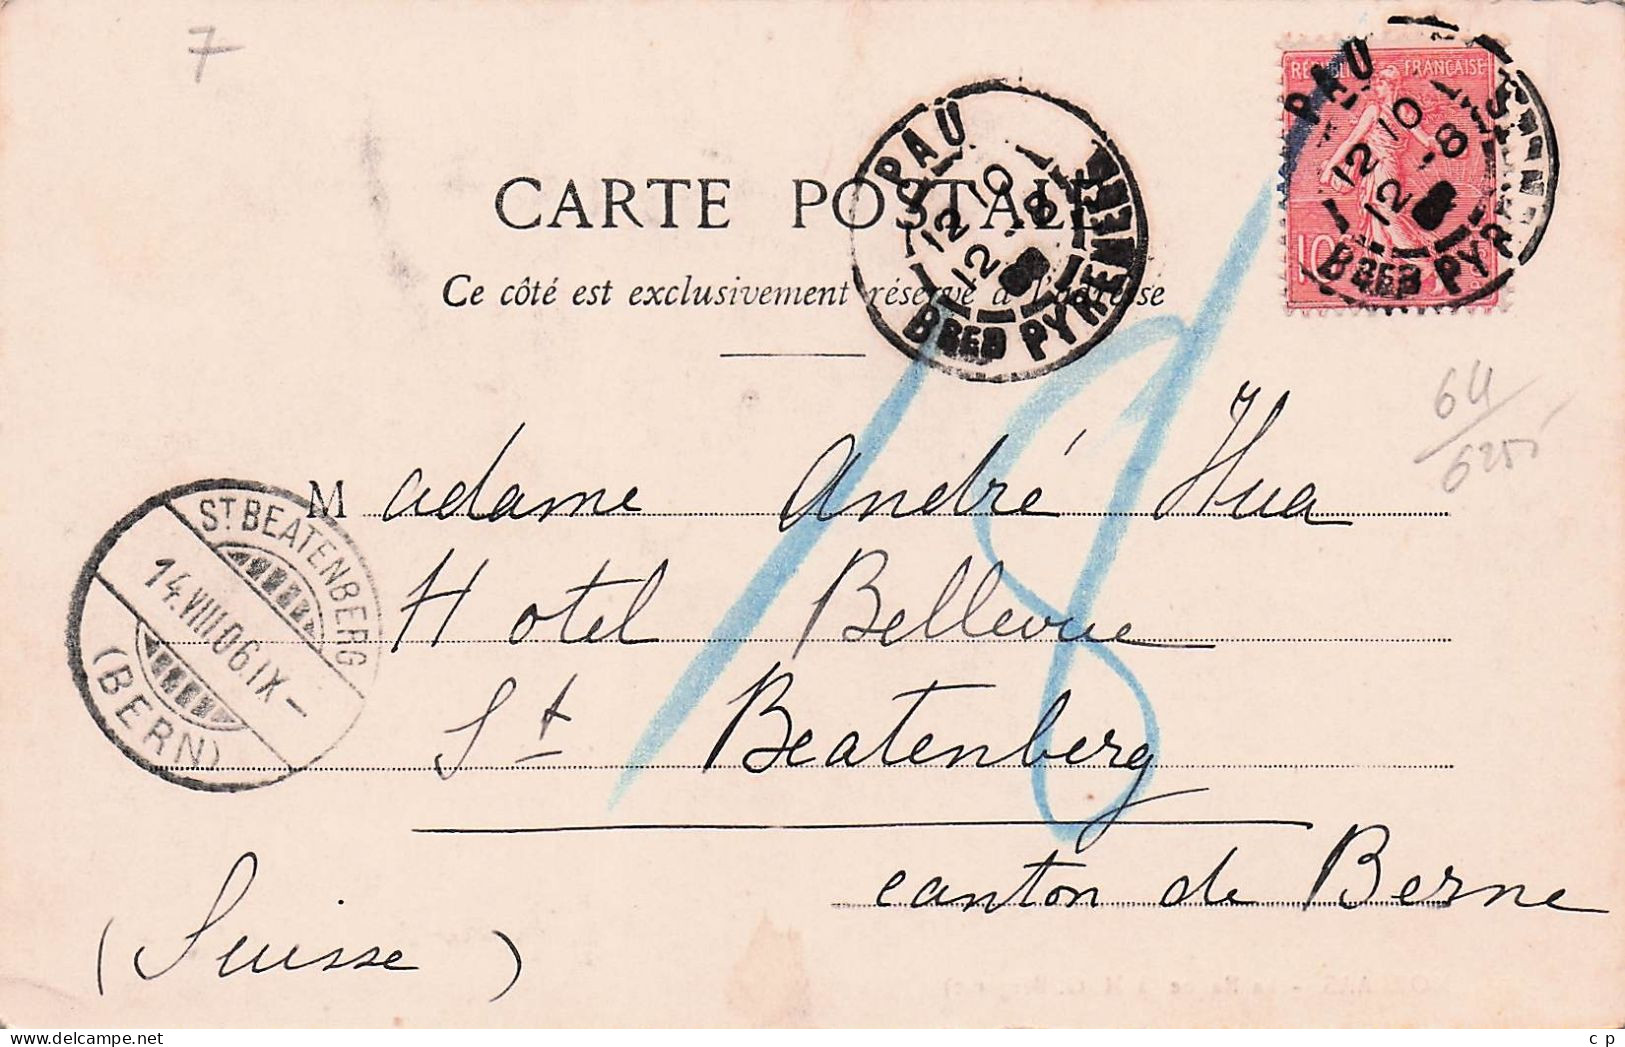 7
CARTE POSTALE
Ce côté est exclusivement réservé à l'adresse
PAU
12 10
12 -8
BSES PYRENEES
RÉPUBLIQUE FRANÇAISE
10
PAU
12 10
12 -8
BSES PYRENEES
18
64
Madame André Hua
Hotel Bellevue
St Beatenberg
canton de Berne
(Suisse)
ST. BEATENBERG
14.VIII.06.IX-
(BERN)
c p